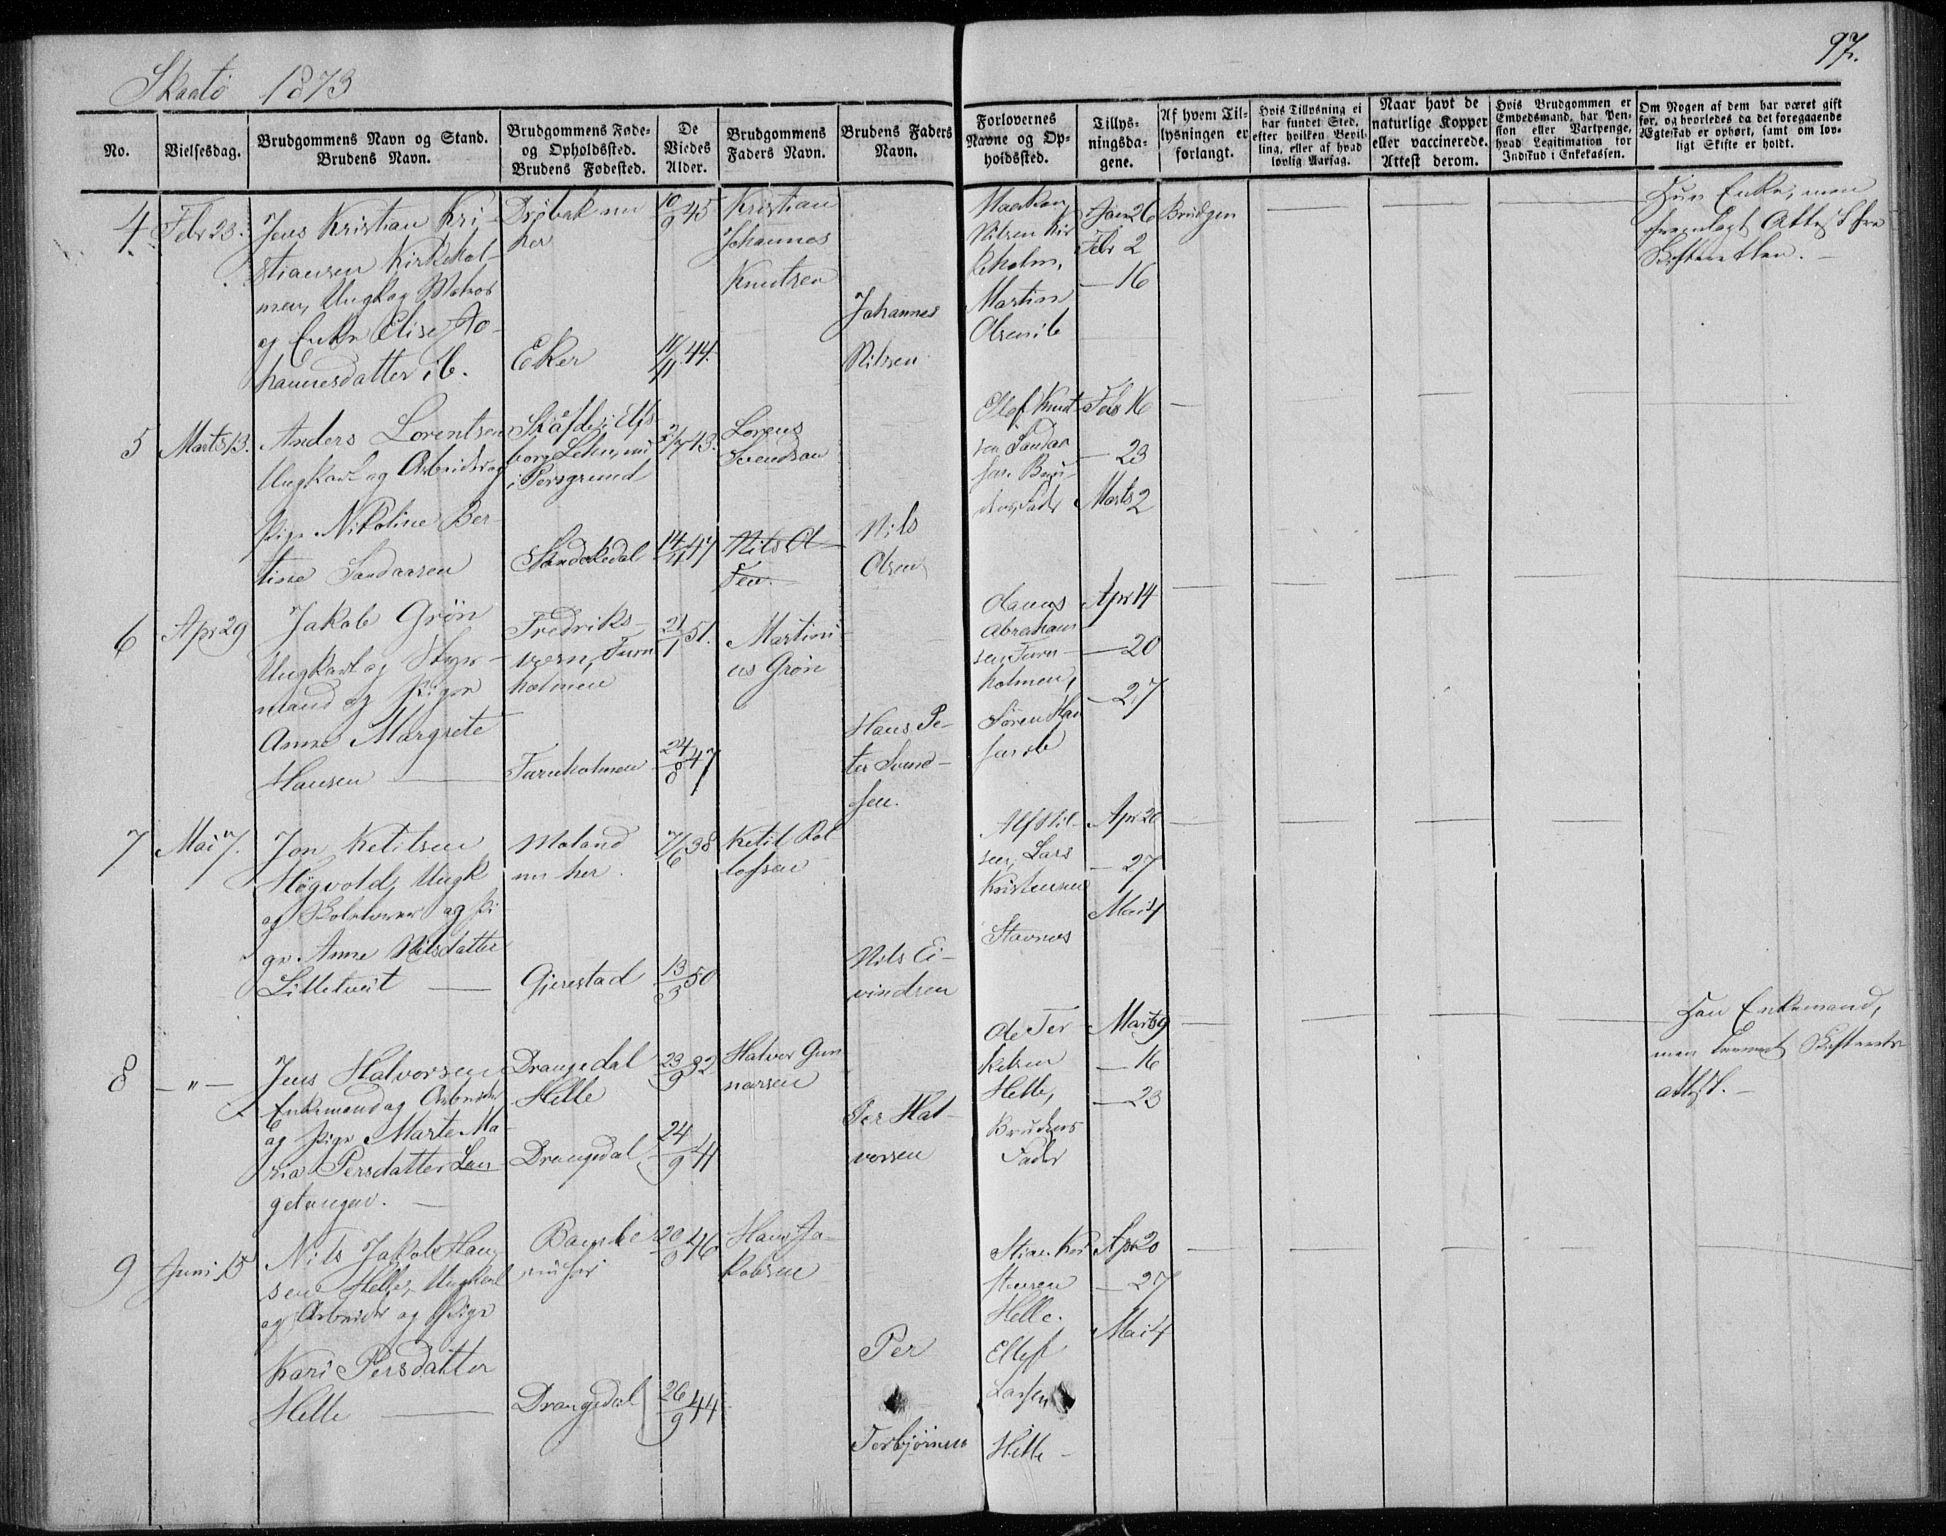 Skaatø 1873
97.
No.
Vielsesdag.
Brudgommens Navn og Stand.
Brudens Navn.
Brudgommens Føde-
og Opholdssted.
Brudens Fødested.
De
Viedes
Alder.
Brudgommens
Faders Navn.
Brudens Faders
Navn.
Forlovernes
Navne og Op-
holdssted.
Tillys-
ningsda-
gene.
Af hvem Til-
lysningen er
forlangt.
Hvis Tillysning ei
har fundet Sted,
efter hvilken Bevil-
ling, eller af hvad
lovlig Aarsag.
Naar havt de
naturlige Kopper
eller vaccinerede.
Attest derom.
Hvis Brudgommen er
Embedsmand, har Pen-
sion eller Vartpenge,
hvad Legitimation for
Indskud i Enkekassen.
Om Nogen af dem har været gift
før, og hvorledes da det foregaaende
Ægteskab er ophørt, samt om lov-
ligt Skifte er holdt.
4
Febr 23.
Jens Kristian Kri-
stiansen Kirkehol-
men, Ungk og Matros
og Enke Elise Jo-
hannesdatter ib.
Drøbak nu
her
Eker
10/9 45
11/11 44.
Kristian
Johannes
Knutsen
Johannes
Nilsen
Nilsen Kir
keholm,
Martin
Olsen ib
Jan 26
Febr 2
— 16
Brudgen
Hun Enke, men
fremlagt Attest fra
Skifteretten. —
5
Marts 13.
Anders Lorentsen
Ungkarl og Arbeider og
Pige Nikoline Ber-
tine Sandaasen
Elfs
borg Lehn, nu
i Porsgrund
Sandøkedal
43.
14/11 47
Lorens
Svendsen
Nils Ol
sen.
Nils
Olsen
Olof Knut
sen Sandaa
sen. Bru-
dens Fader
Feb 16
— 23
Marts 2
6
Apr 29
Jakob Grøn
Ungkarl og Styr-
mand og Pigen
Anne Margrete
Hansen
Fredriks-
værn, Furu
holmen
Furuholmen
21/1 51.
24/8 47
Martini
us Grøn
Hans Pe-
ter Svend-
sen.
Abraham
sen Furu-
holmen,
Søren Han
sen ib
Apr 14
— 20
— 27
7
Mai 7.
Jon Ketilsen
Høgvold, Ungk
og og Pi
ge Anne Nilsdatter
Lilletveit
Moland
nu her.
Gjerestad
7/6 38
13/3 50
Ketil Rol
lofsen
Nils Ei-
vindsen
Alf Nil-
sen, Lars
Kristensen
Stavnes
Apr 20
— 27
Mai 4
8
— " —
Jens Halvorsen
Enkemand og Arbeider
og Pige Marte Ma-
ria Persdatter Lan-
getangen.
Drangedal
Helle
Drangedal
23/9 32
24/9 41
Halvor Gun
narsen
Per Hal-
vorsen
Ole Ter
kelsen
Helle,
Brudens
Fader
Marts 9
— 16
— 23
Han Enkemand,
men leveret Skifterets
attest. —
9
Juni 15
Nils Jakob Han-
sen Helle, Ungkarl
og Arbeider og Pige
Kari Persdatter
Helle
Bamble
nu her
Drangedal
20/8 46
26/9 44
Hans Ja-
kobsen
Per
Torbjørnsen
Stian Kri
stensen
Helle.
Ellef
Larsen
Helle
Apr 20
— 27
Mai 4